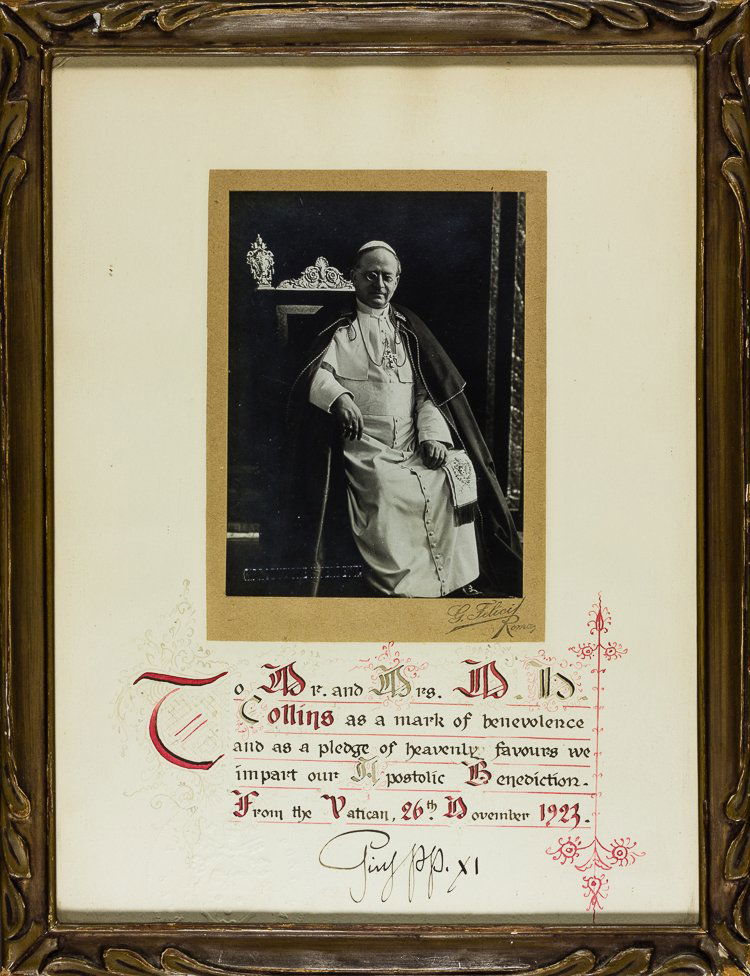 G. Felici
Roma
To Mr. and Mrs. M.
Collins as a mark of benevolence
and as a pledge of heavenly favours we
impart our Apostolic Benediction.
From the Vatican, 26th November 1923.
Pius PP. XI